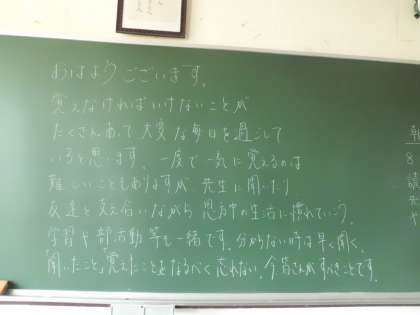 おはようございます。
覚えなければいけないことが
たくさんあって、大変な毎日を過ごして
いると思います。一度で一気に覚えるのは
難しいこともありますが、先生に聞いたり
友達と支え合いながら 恩方中の生活に慣れていこう。
学習や部活動等も一緒です。分からない時は早く聞く。
「聞いたこと」「覚えたこと」をなるべく忘れない。今皆さんがすべきことです。
朝
8
請